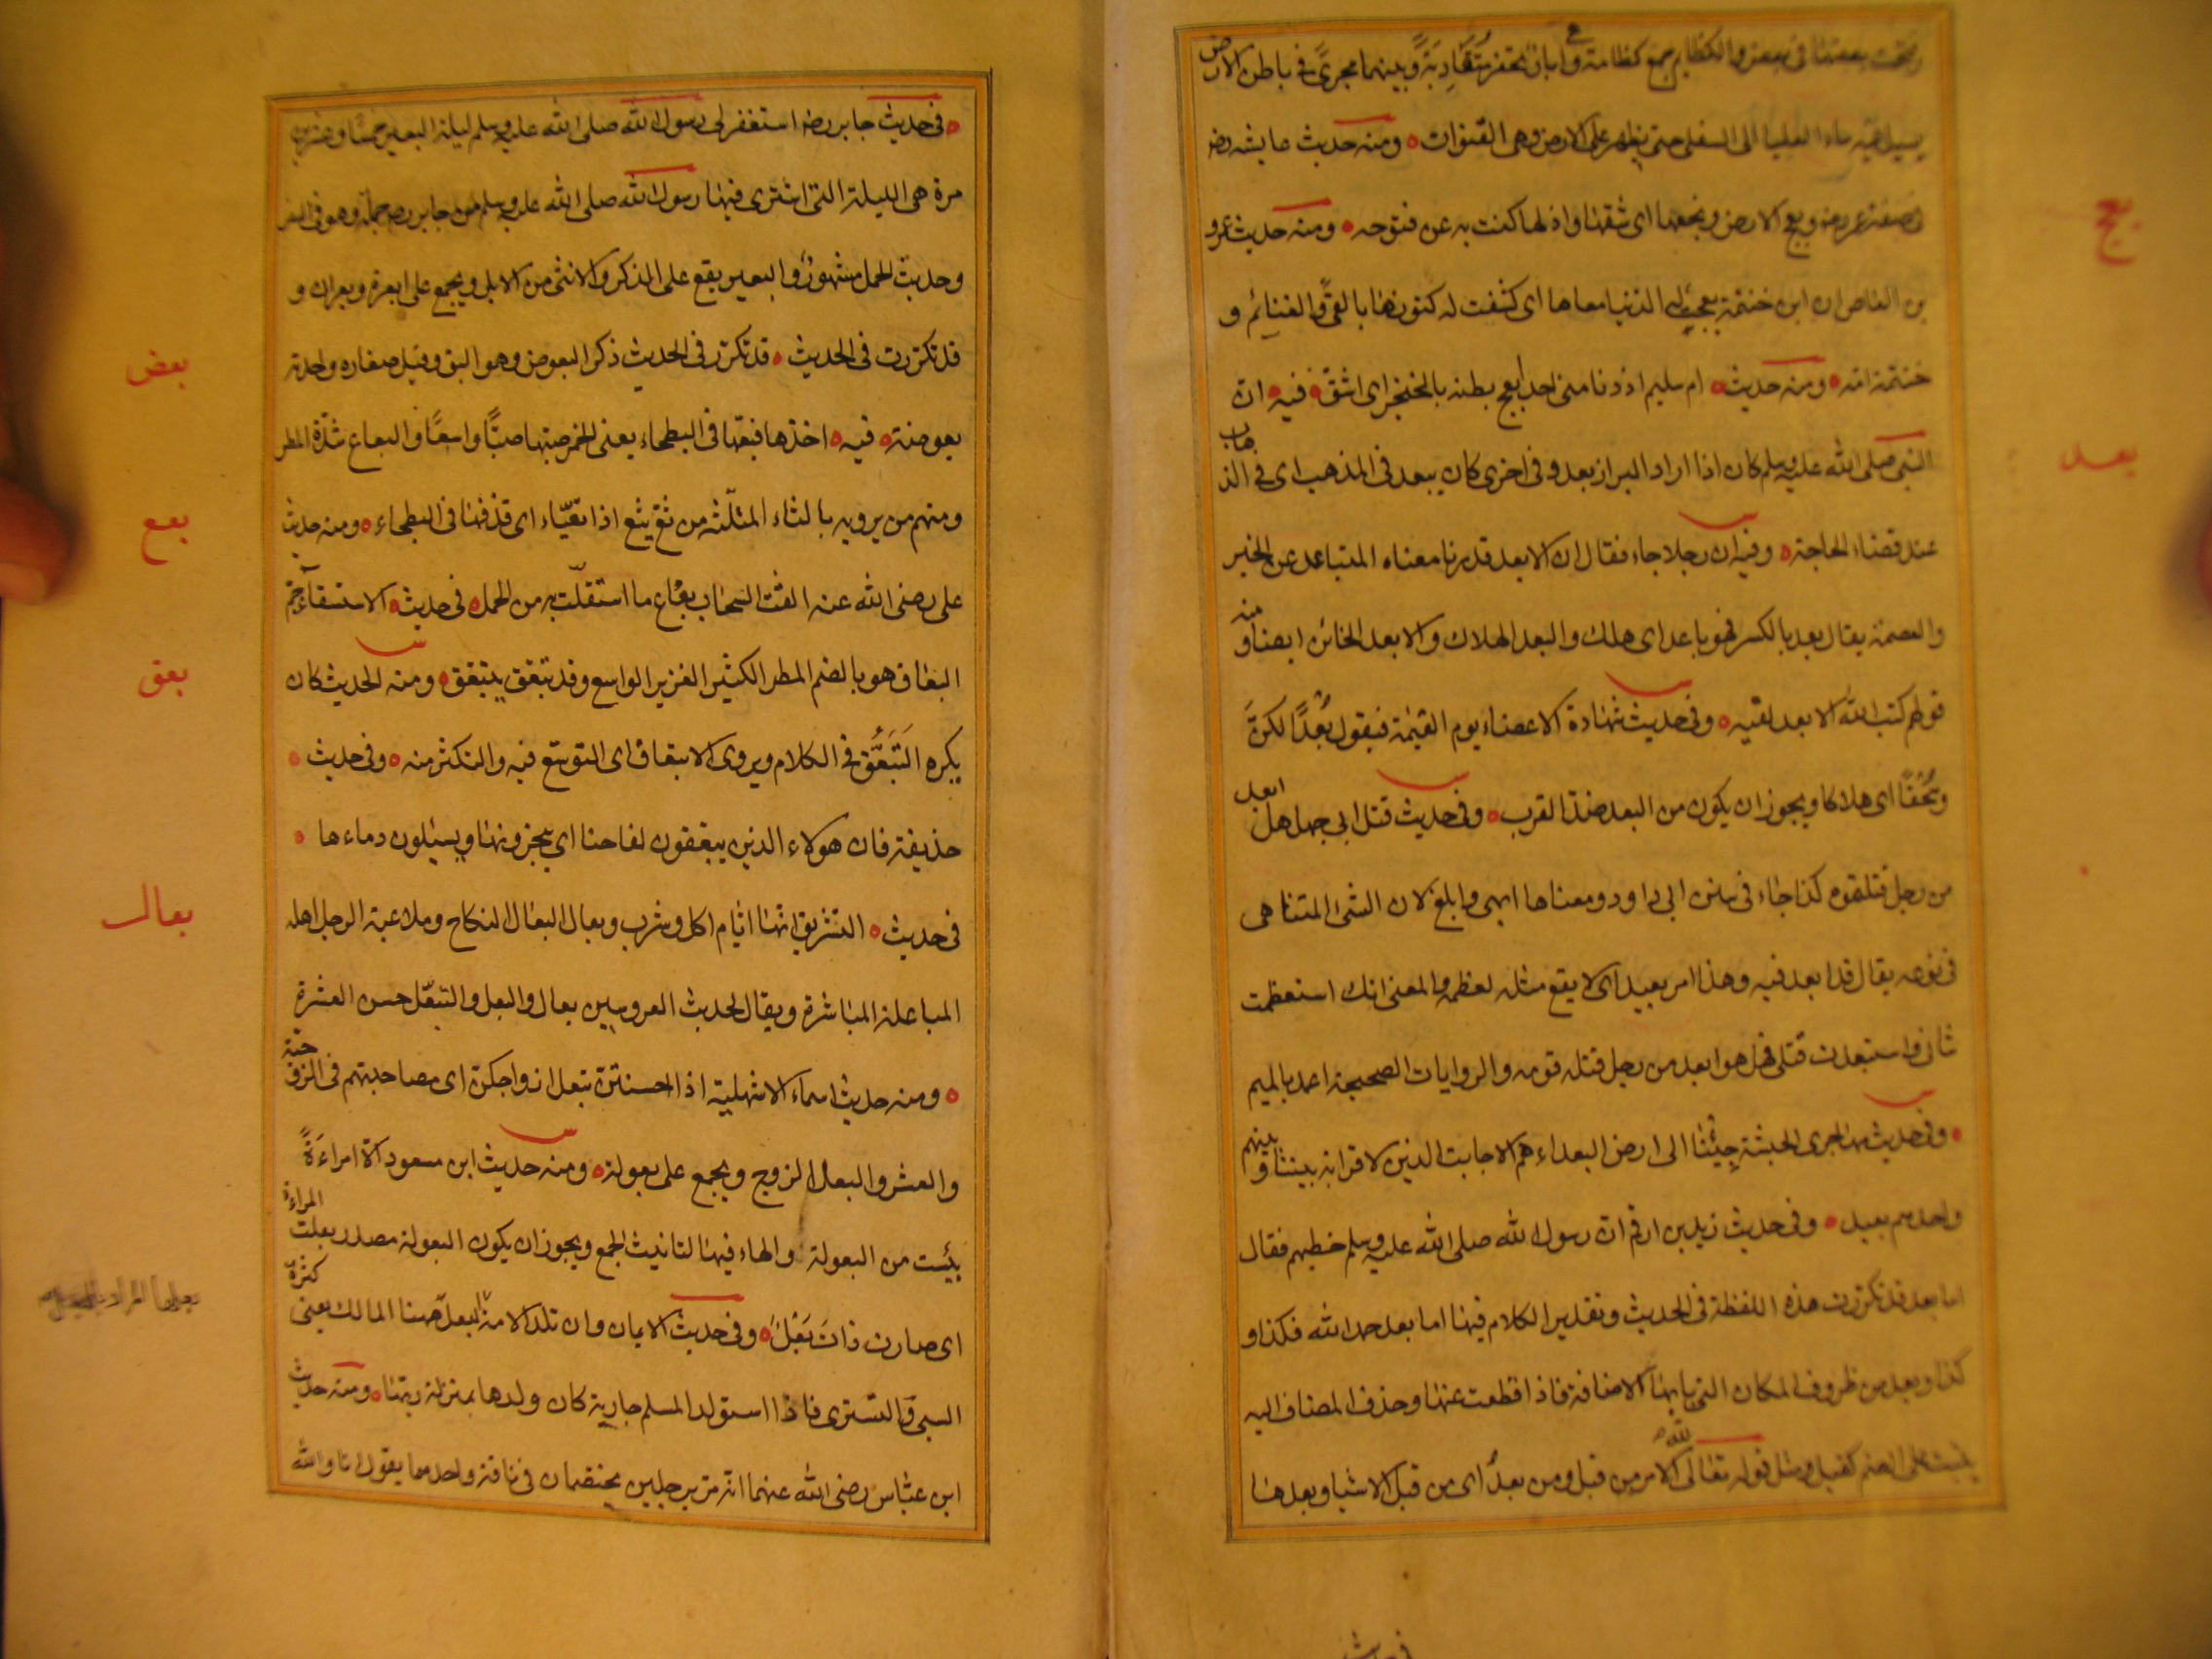 وفتحت بعضها فى بعض والكظايم جمع كظامة وهى ابار تحفر متقاربة وبينها مجرى فى باطن الارض
يسيل فيه ماء العليا الى السفلى حتى يظهر على الارض وهى القنوات ومنه حديث عايشه رضه
فى صفة عمر رضه وبعج الارض وبخعها اى شقها واذلها كنت به عن فتوحه ومنه حديث عمرو
بن العاص ان ابن خنتمة بعجت له الدنيا معاها اى كشفت له كنوزها بالفئ والغنايم و
خنتمة امه ومنه حديث ام سليم ان دنا منى احد ابعج بطنه بالخنجر اى اشق فيه ان
بعج
النبى صلى الله عليه وسلم كان اذا اراد البراز بعد وفى اخرى كان يبعد فى المذهب اى فى الذهاب
بعد
عند قضاء الحاجة وفيه ان رجلا جاء فقال ان الابعد قد زنا معناه المتباعد عن الخير
والعصمة يقال بعد بالكسر فهو باعد اى هلك والبعد الهلاك والابعد الخائن ايضا ومنه
قولهم كتب الله الابعد لفيه وفى حديث شهادة الاعضاء يوم القيمة فيقول بعدا لكن
وسحقا اى هلاكا ويجوز ان يكون من البعد ضد القرب وفى حديث قتل ابى جهل هل ابعد
من رجل قتلتموه كذا جاء فى سنن ابى داود ومعناها انهى وابلغ لان الشئ المتناهى
فى نوعه يقال قد ابعد فيه وهذا امر بعيد اى لا يقع مثله لعظمه والمعنى انك استعظمت
شانى واستبعدت قتلى فهل هو ابعد من رجل قتله قومه والروايات الصحيحة اعمد بالميم
وفى حديث مهاجرى الحبشة جئنا الى ارض البعداء هم الاجانب الذين لا قرابة بيننا وبينهم
واحدهم بعيد وفى حديث زيد بن ارقم ان رسول الله صلى الله عليه وسلم خطبهم فقال
اما بعد قد تكررت هذه اللفظة فى الحديث وتقدير الكلام فيها اما بعد حمد الله فكذا و
كذا وبعد من ظروف المكان التى بابها الاضافة فاذا قطعت عنها وحذف المضاف اليه
بنيت على الضم كقبل ومثله قوله تعالى لله الامر من قبل ومن بعد اى من قبل الاشيا وبعدها
فى حديث جابر رضه استغفر لى رسول الله صلى الله عليه وسلم ليلة البعير خمسا وعشرين
مرة هى الليلة التى اشترى فيها رسول الله صلى الله عليه وسلم من جابر رضه جمله وهو فى السفر
وحديث الجمل مشهور والبعير يقع على الذكر والانثى من الابل ويجمع على ابعرة وبعران و
قد تكررت فى الحديث قد تكرر فى الحديث ذكر البعوض وهو البق وقيل صغاره واحدته
بعض
بعوضة فيه اخذها فبعها فى البطحاء يعنى الخمر صبها صبا واسعا والبعاع شدة المطر
بعع
ومنهم من يرويه بالثاء المثلثه من ثع يثع اذا تقياء اى قذفها فى البطحاء ومنه حديث
على رضى الله عنه القت السحاب بعاع ما استقلت به من الحمل فى حديث الاستسقاء جم
البعاق هو بالضم المطر الكثير الغزير الواسع وقد تبعق يتبعق ومنه الحديث كان
بعق
يكره التبعق فى الكلام ويروى الانبعاق اى التوسع فيه والتكثر منه وفى حديث
حذيفة فان هولاء الذين يبعقون لقاحنا اى ينحرونها ويسيلون دماءها
فى حديث التشريق انها ايام اكل وشرب وبعال البعال النكاح وملاعبة الرجل اهله
بعال
المباعلة المباشرة ويقال لحديث العروسين بعال والبعل والتبعل حسن العشرة
ومنه حديث اسماء الاشهلية اذا احسنتن تبعل ازواجكن اى مصاحبتهم فى الزوجية
والعشر والبعل الزوج ويجمع على بعولة ومنه حديث ابن مسعود الا امراءة
يئست من البعولة والهاء فيها لتانيث الجمع ويجوز ان يكون البعولة مصدر بعلت المراءة
اى صارت ذات بعل وفى حديث الايمان وان تلد الامة بعلها هنا المالك يعنى كثرة
السبى والتسرى فاذا استولد المسلم جارية كان ولدها بمنزلة ربها ومنه حديث
ابن عباس رضى الله عنهما انه مر برجلين يختصمان فى ناقة واحدهما يقول انا والله